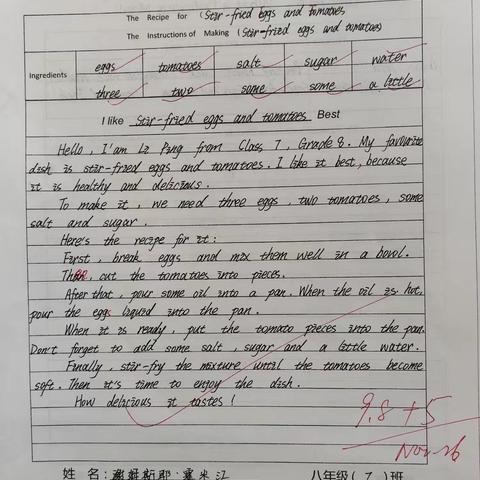 The Recipe for (Stir-fried eggs and tomatoes
The Instructions of Making (Stir-fried eggs and tomatoes)
Ingredients eggs tomatoes salt sugar water
three two some some a little
I like Stir-fried eggs and tomatoes Best
Hello, I'am Li Ping from Class 7, Grade 8. My favourite
dish is stir-fried eggs and tomatoes. I like it best, because
it is healthy and delicious.
To make it, we need three eggs, two tomatoes, some
salt and sugar.
Here's the recipe for it:
First, break eggs and mix them well in a bowl.
Then, cut the tomatoes into pieces.
After that, pour some oil into a pan. When the oil is hot,
pour the egg liquid into the pan.
When it is ready, put the tomato pieces into the pan.
Don't forget to add some salt, sugar and a little water.
Finally, stir-fry the mixture until the tomatoes become
soft. Then it's time to enjoy the dish.
How delicious it tastes!
9.8+5
Nov.26
姓名: 姆斯耶·塞米江 八年级(7)班